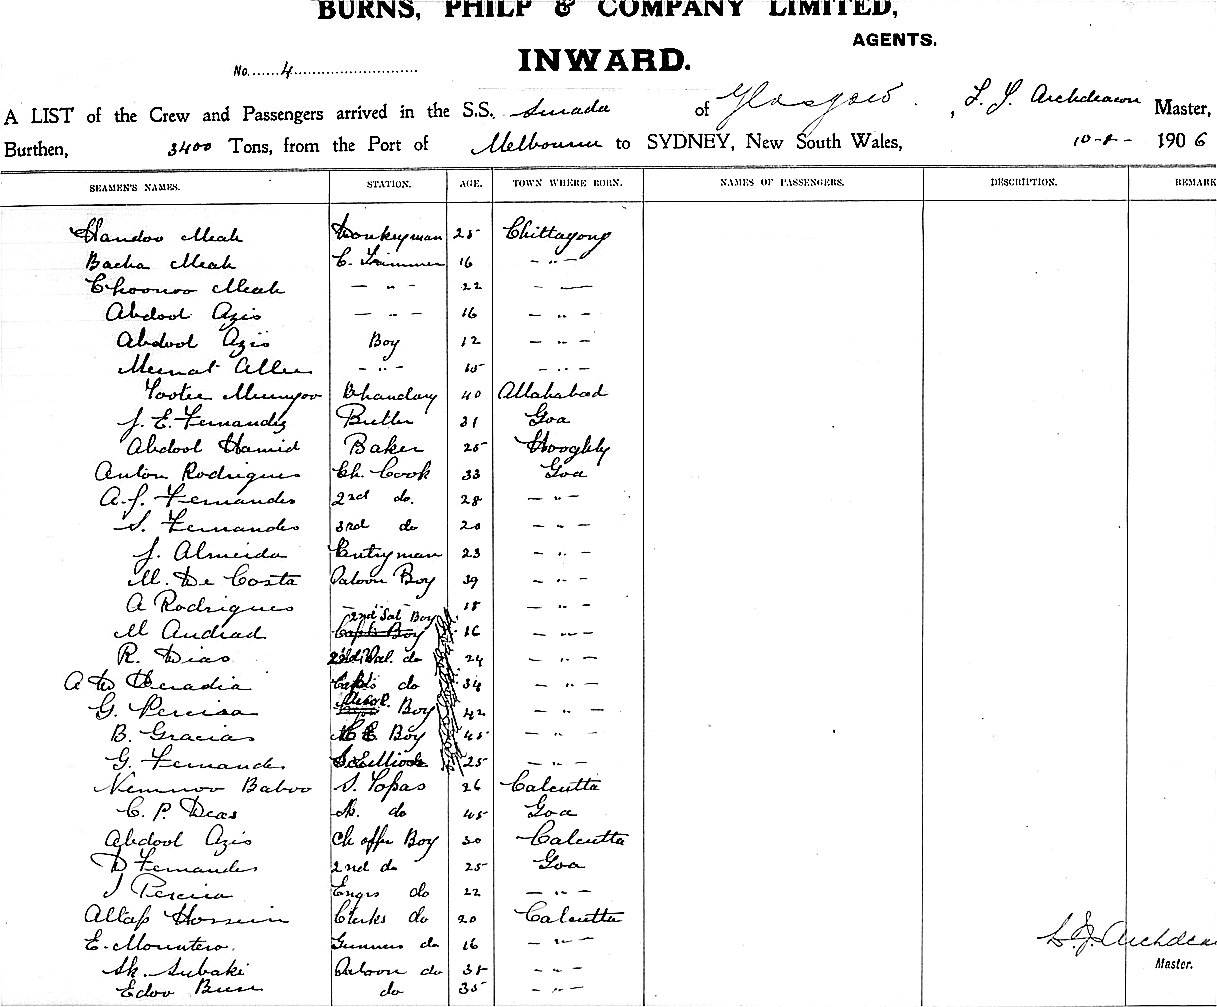 BURNS, PHILP & COMPANY LIMITED,
AGENTS.
INWARD.
No. 4
A LIST of the Crew and Passengers arrived in the S.S. of Glasgow, Archdeacon Master,
Burthen, 3400 Tons, from the Port of Melbourne to SYDNEY, New South Wales, 10-8- 1906
SEAMEN'S NAMES. STATION. AGE. TOWN WHERE BORN. NAMES OF PASSENGERS. DESCRIPTION. REMARK
Meah Donkeyman 25 Chittagong
Bacha Meah C. Trimmer 16 — „ —
Choonoo Meah — „ — 22 — —
Abdool Azis — „ — 16 — „ —
Abdool Azis Boy 12 — „ —
— „ — 15 — „ —
Bhandary 40 Allahabad
J. E. Fernandez Butler 31 Goa
Abdool Hamid Baker 25 Hooghly
Anton Rodrigues Ch. Cook 33 Goa
A. J. Fernandes 2nd do. 28 — „ —
S. Fernandes 3rd do 20 — „ —
J. Almeida 23 — „ —
M. De Costa Saloon Boy 39 — „ —
A Rodrigues — „ — 18 — „ —
M Andrad 2nd Sal Boy Capt's Boy 16 — „ —
R. Dias Sal. do 24 — „ —
A De Heradia Capts do 34 — „ —
G. Pereira Boy 42 — „ —
B. Gracias Boy 45 — „ —
G. Fernandes 25 — „ —
Baboo S. Topas 26 Calcutta
C. P. Deas do 45 Goa
Abdool Azis Ch offr Boy 30 Calcutta
D Fernandes 2nd do 25 Goa
J Pereira Engrs do 22 — „ —
Hossein Clerks do 20 Calcutta
E. Mountero. Gunners do 16 — „ —
Sk. Subaki Saloon do 35 — „ —
Edoo Bux do 35 — „ —
Master.